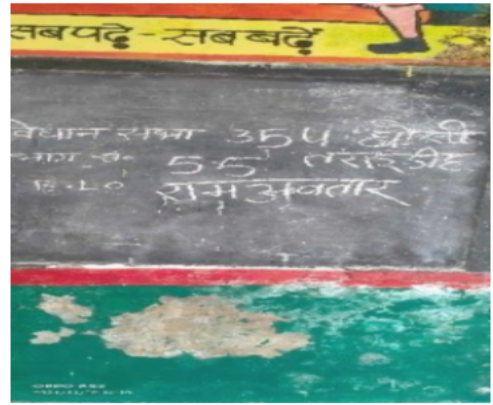 सब पढ़े - सब बढ़ें
विधान सभा 354 घोसी
भाग सं० 55
B.L.O राम अवतार
OPPO A52